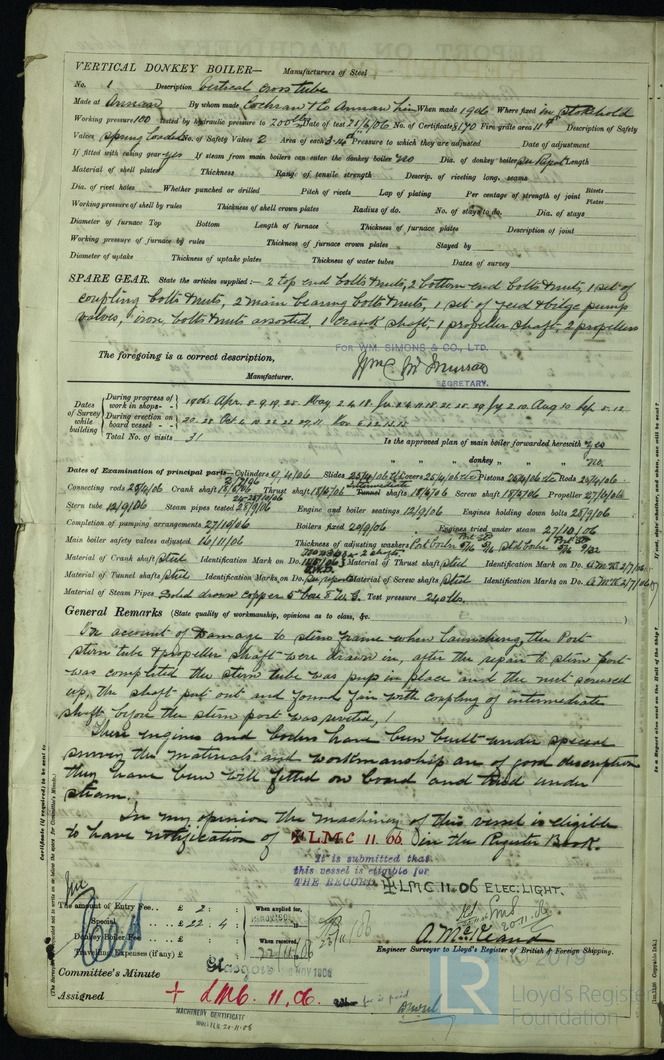 VERTICAL DONKEY BOILER— Manufacturers of Steel
No. 1 Description Vertical cross tube
Made at Annan By whom made Cochran & Co Annan Lim When made 1906 Where fixed in stokehold
Working pressure 100 tested by hydraulic pressure to 200 lbs Date of test 21/6/06 No. of Certificate 8170 Fire grate area 11 Description of Safety
Valves Spring loaded No. of Safety Valves 2 Area of each 3.14 Pressure to which they are adjusted Date of adjustment
If fitted with easing gear yes If steam from main boilers can enter the donkey boiler no Dia. of donkey boiler See Report Length
Material of shell plates Thickness Range of tensile strength Descrip. of riveting long. seams
Dia. of rivet holes Whether punched or drilled Pitch of rivets Lap of plating Per centage of strength of joint Rivets Plates
Working pressure of shell by rules Thickness of shell crown plates Radius of do. No. of stays to do. Dia. of stays
Diameter of furnace Top Bottom Length of furnace Thickness of furnace plates Description of joint
Working pressure of furnace by rules Thickness of furnace crown plates Stayed by
Diameter of uptake Thickness of uptake plates Thickness of water tubes Dates of survey
SPARE GEAR. State the articles supplied:— 2 top end bolts & nuts, 2 bottom end bolts & nuts, 1 set of
coupling bolts & nuts, 2 main bearing bolts & nuts, 1 set of feed & bilge pump
valves, iron, bolts & nuts assorted, 1 crank shaft, 1 propeller shaft, 2 propellers
The foregoing is a correct description,
FOR WM. SIMONS & CO., LTD.
Manufacturer.
SECRETARY.
Dates of Survey while building
During progress of work in shops - - 1906 Apr. 8. 9. 19. 25. May 2. 4. 18. Jn
During erection on board vessel - - 20. 28 Oct
Total No. of visits 31
Is the approved plan of main boiler forwarded herewith yes
" " " donkey " " " no.
Dates of Examination of principal parts—Cylinders Slides 25/4/06 Covers 25/4/06 Pistons 25/4/06 Rods 25/4/06
Connecting rods 25/4/06 Crank shaft Thrust shaft 18/6/06 Intermediate Tunnel shafts 18/6/06 Screw shaft 18/6/06 Propeller 27/6/06
Stern tube 12/9/06 Steam pipes tested 28/9/06 Engine and boiler seatings 12/9/06 Engines holding down bolts 28/9/06
Completion of pumping arrangements 27/10/06 Boilers fixed 20/9/06 Engines tried under steam 27/10/06
Main boiler safety valves adjusted 16/11/06 Thickness of adjusting washers Port boiler Stbd boiler
Material of Crank shaft Steel Identification Mark on Do. Material of Thrust shaft Steel Identification Mark on Do. A.McK 2/7/06
Material of Tunnel shafts Steel Identification Marks on Do. See report Material of Screw shafts Steel Identification Marks on Do. A.McK 2/7/06
Material of Steam Pipes Solid drawn copper Test pressure 240 lbs.
General Remarks (State quality of workmanship, opinions as to class, &c.
On account of Damage to stern frame when launching, the Port
stern tube & propeller shaft were drawn in, after the repair to stern post
was completed the stern tube was put in place and the nut screwed
up, the shaft put out and found fair with coupling of intermediate
shaft before the stern post was riveted,
These engines and boilers have been built under special
survey the materials and workmanship are of good description
they have been well fitted on board and tried under
steam.
In my opinion the machinery of this vessel is eligible
to have notification of L.M.C 11. 06. in the Register Book.
It is submitted that
this vessel is eligible for
THE RECORD. L.M.C 11. 06 ELEC. LIGHT.
The amount of Entry Fee.. £ 2 : When applied for,
Special .. £ 22 : 4
Donkey Boiler Fee .. £ When received,
Travelling Expenses (if any) £ 22/11/06
20.11.06
Engineer Surveyor to Lloyd's Register of British & Foreign Shipping.
Committee's Minute Glasgow NOV 1906
Assigned + L.M.C. 11. 06.
MACHINERY CERTIFICATE
WRITTEN 20-11-06
© 2019
LR
Lloyd's Register
Foundation
Certificate (if required) to be sent to